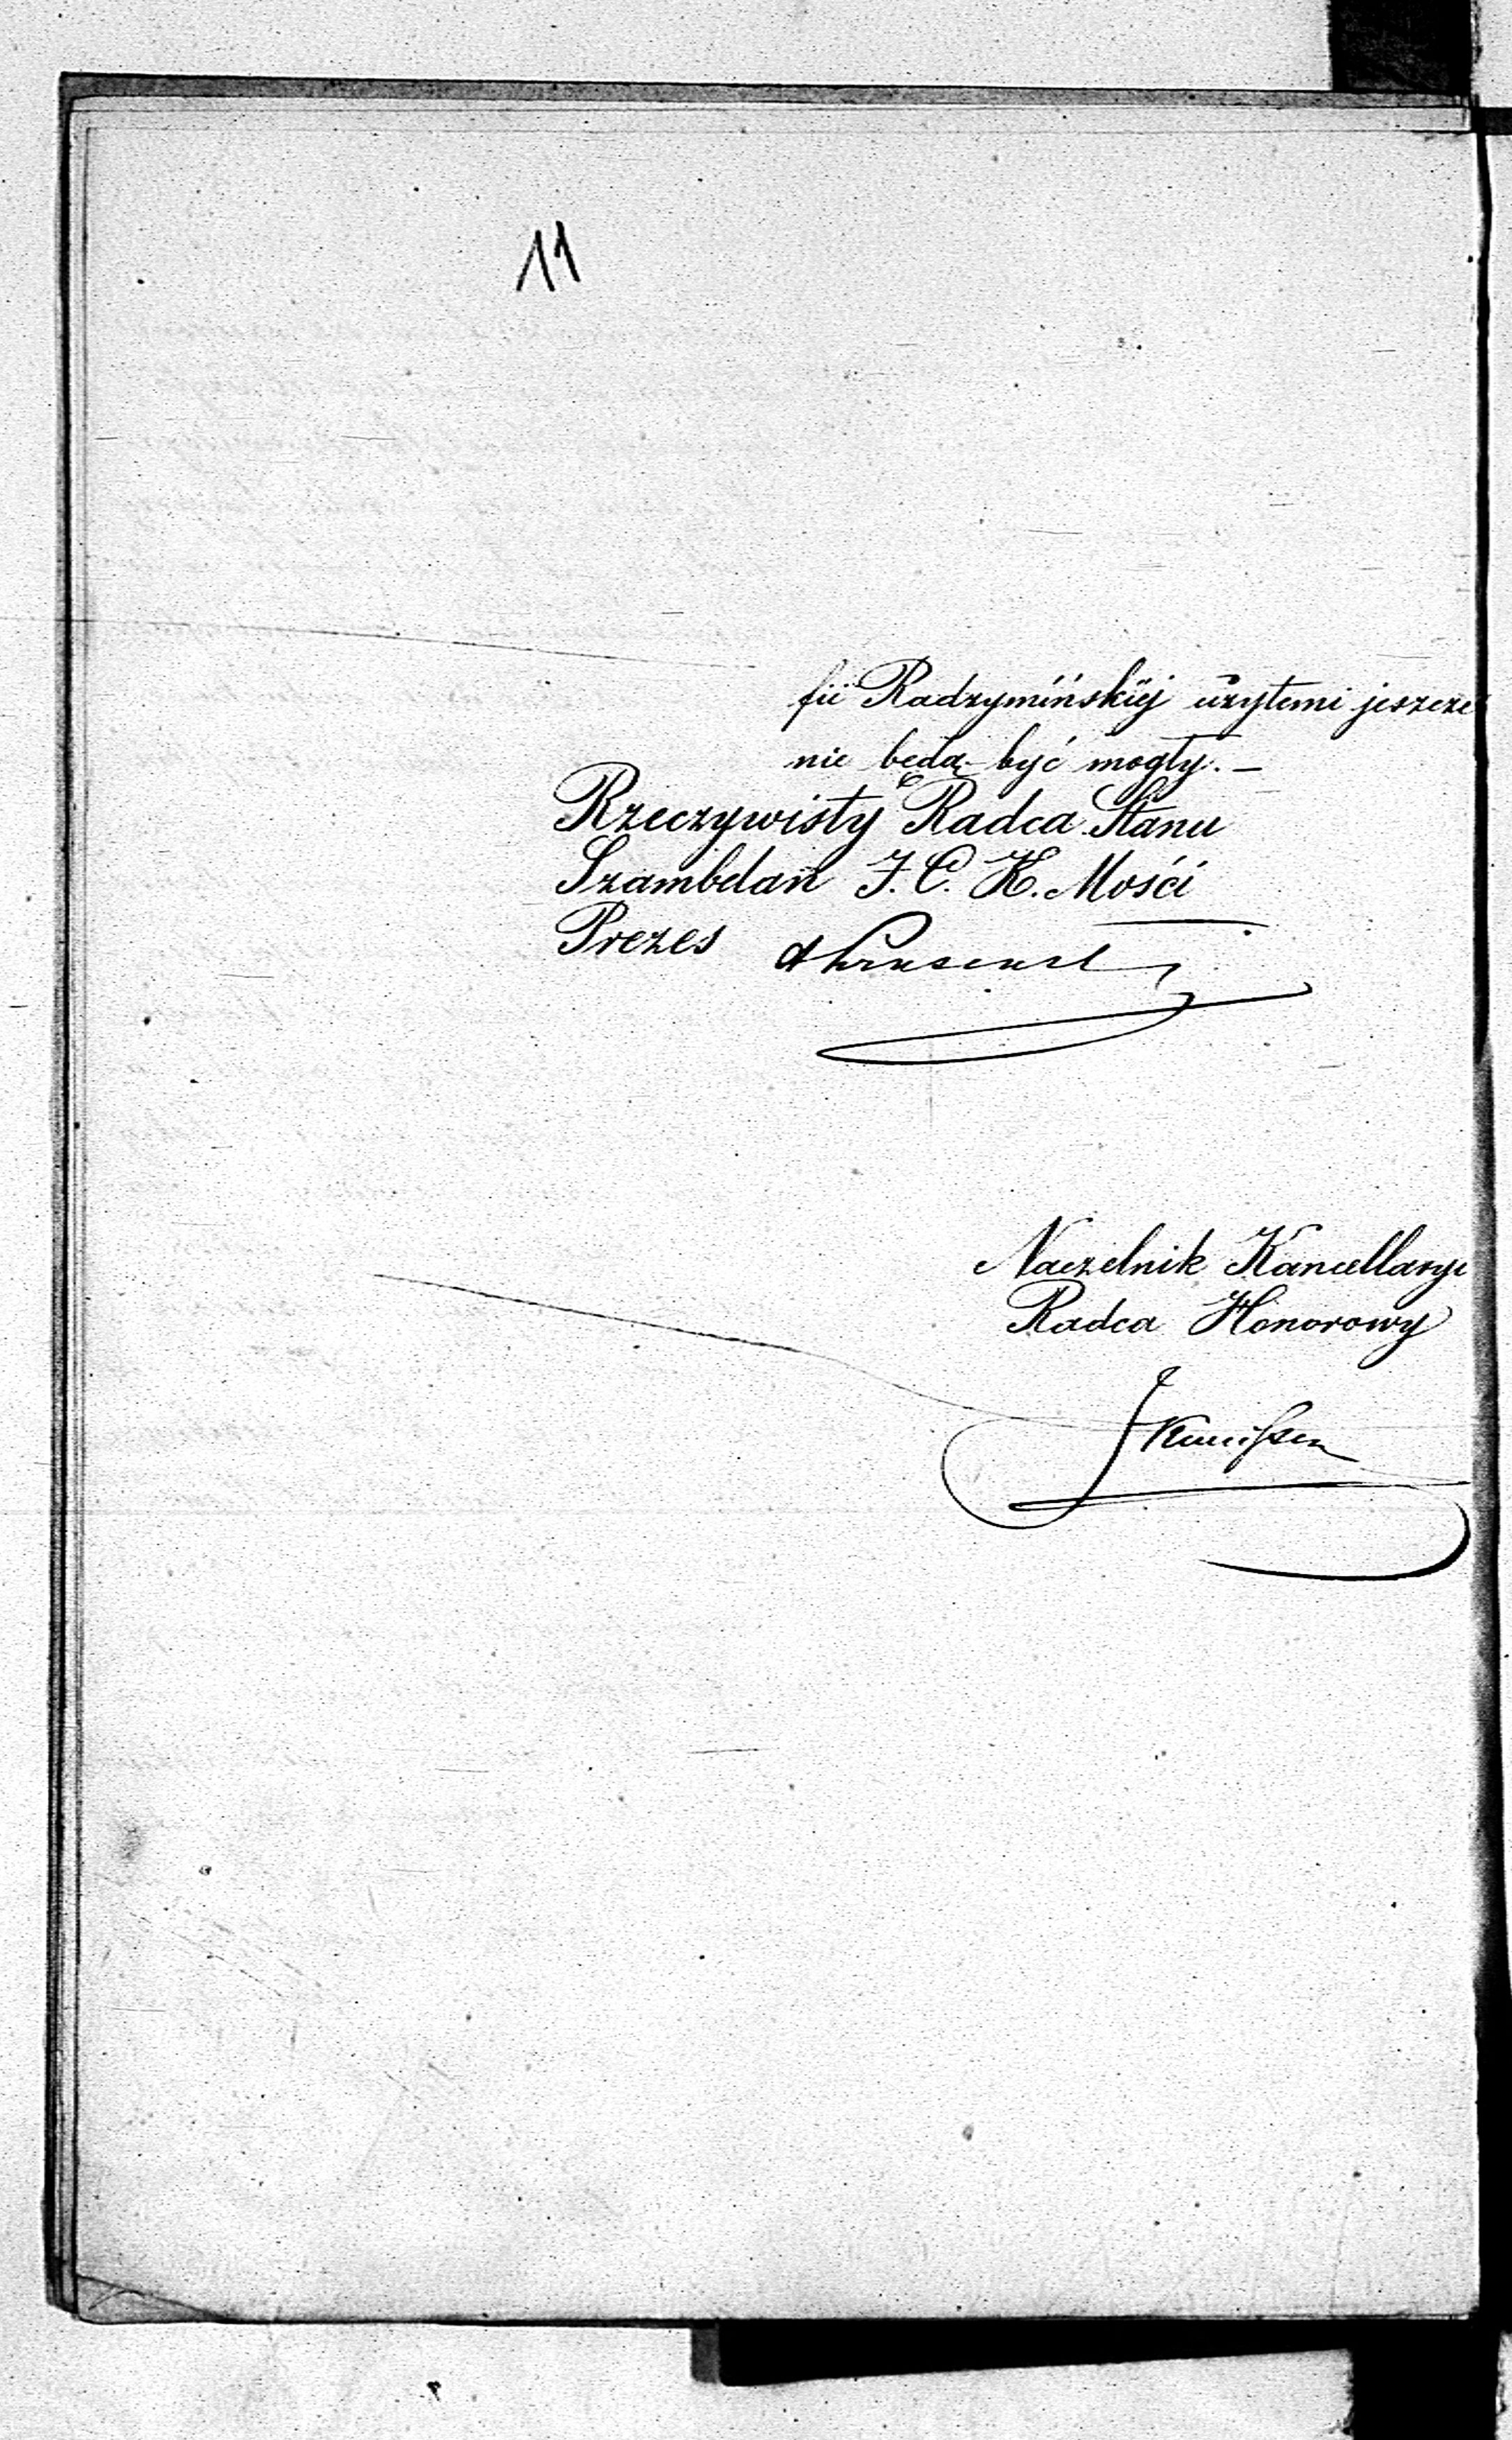 11
fii Radzymińskiéj użytemi jeszcze
nie będą być mogły. —
Rzeczywisty Radca Stanu
Szambelan J. C. K. Mośći
Prezes
Naczelnik Kancellaryi
Radca Honorowy